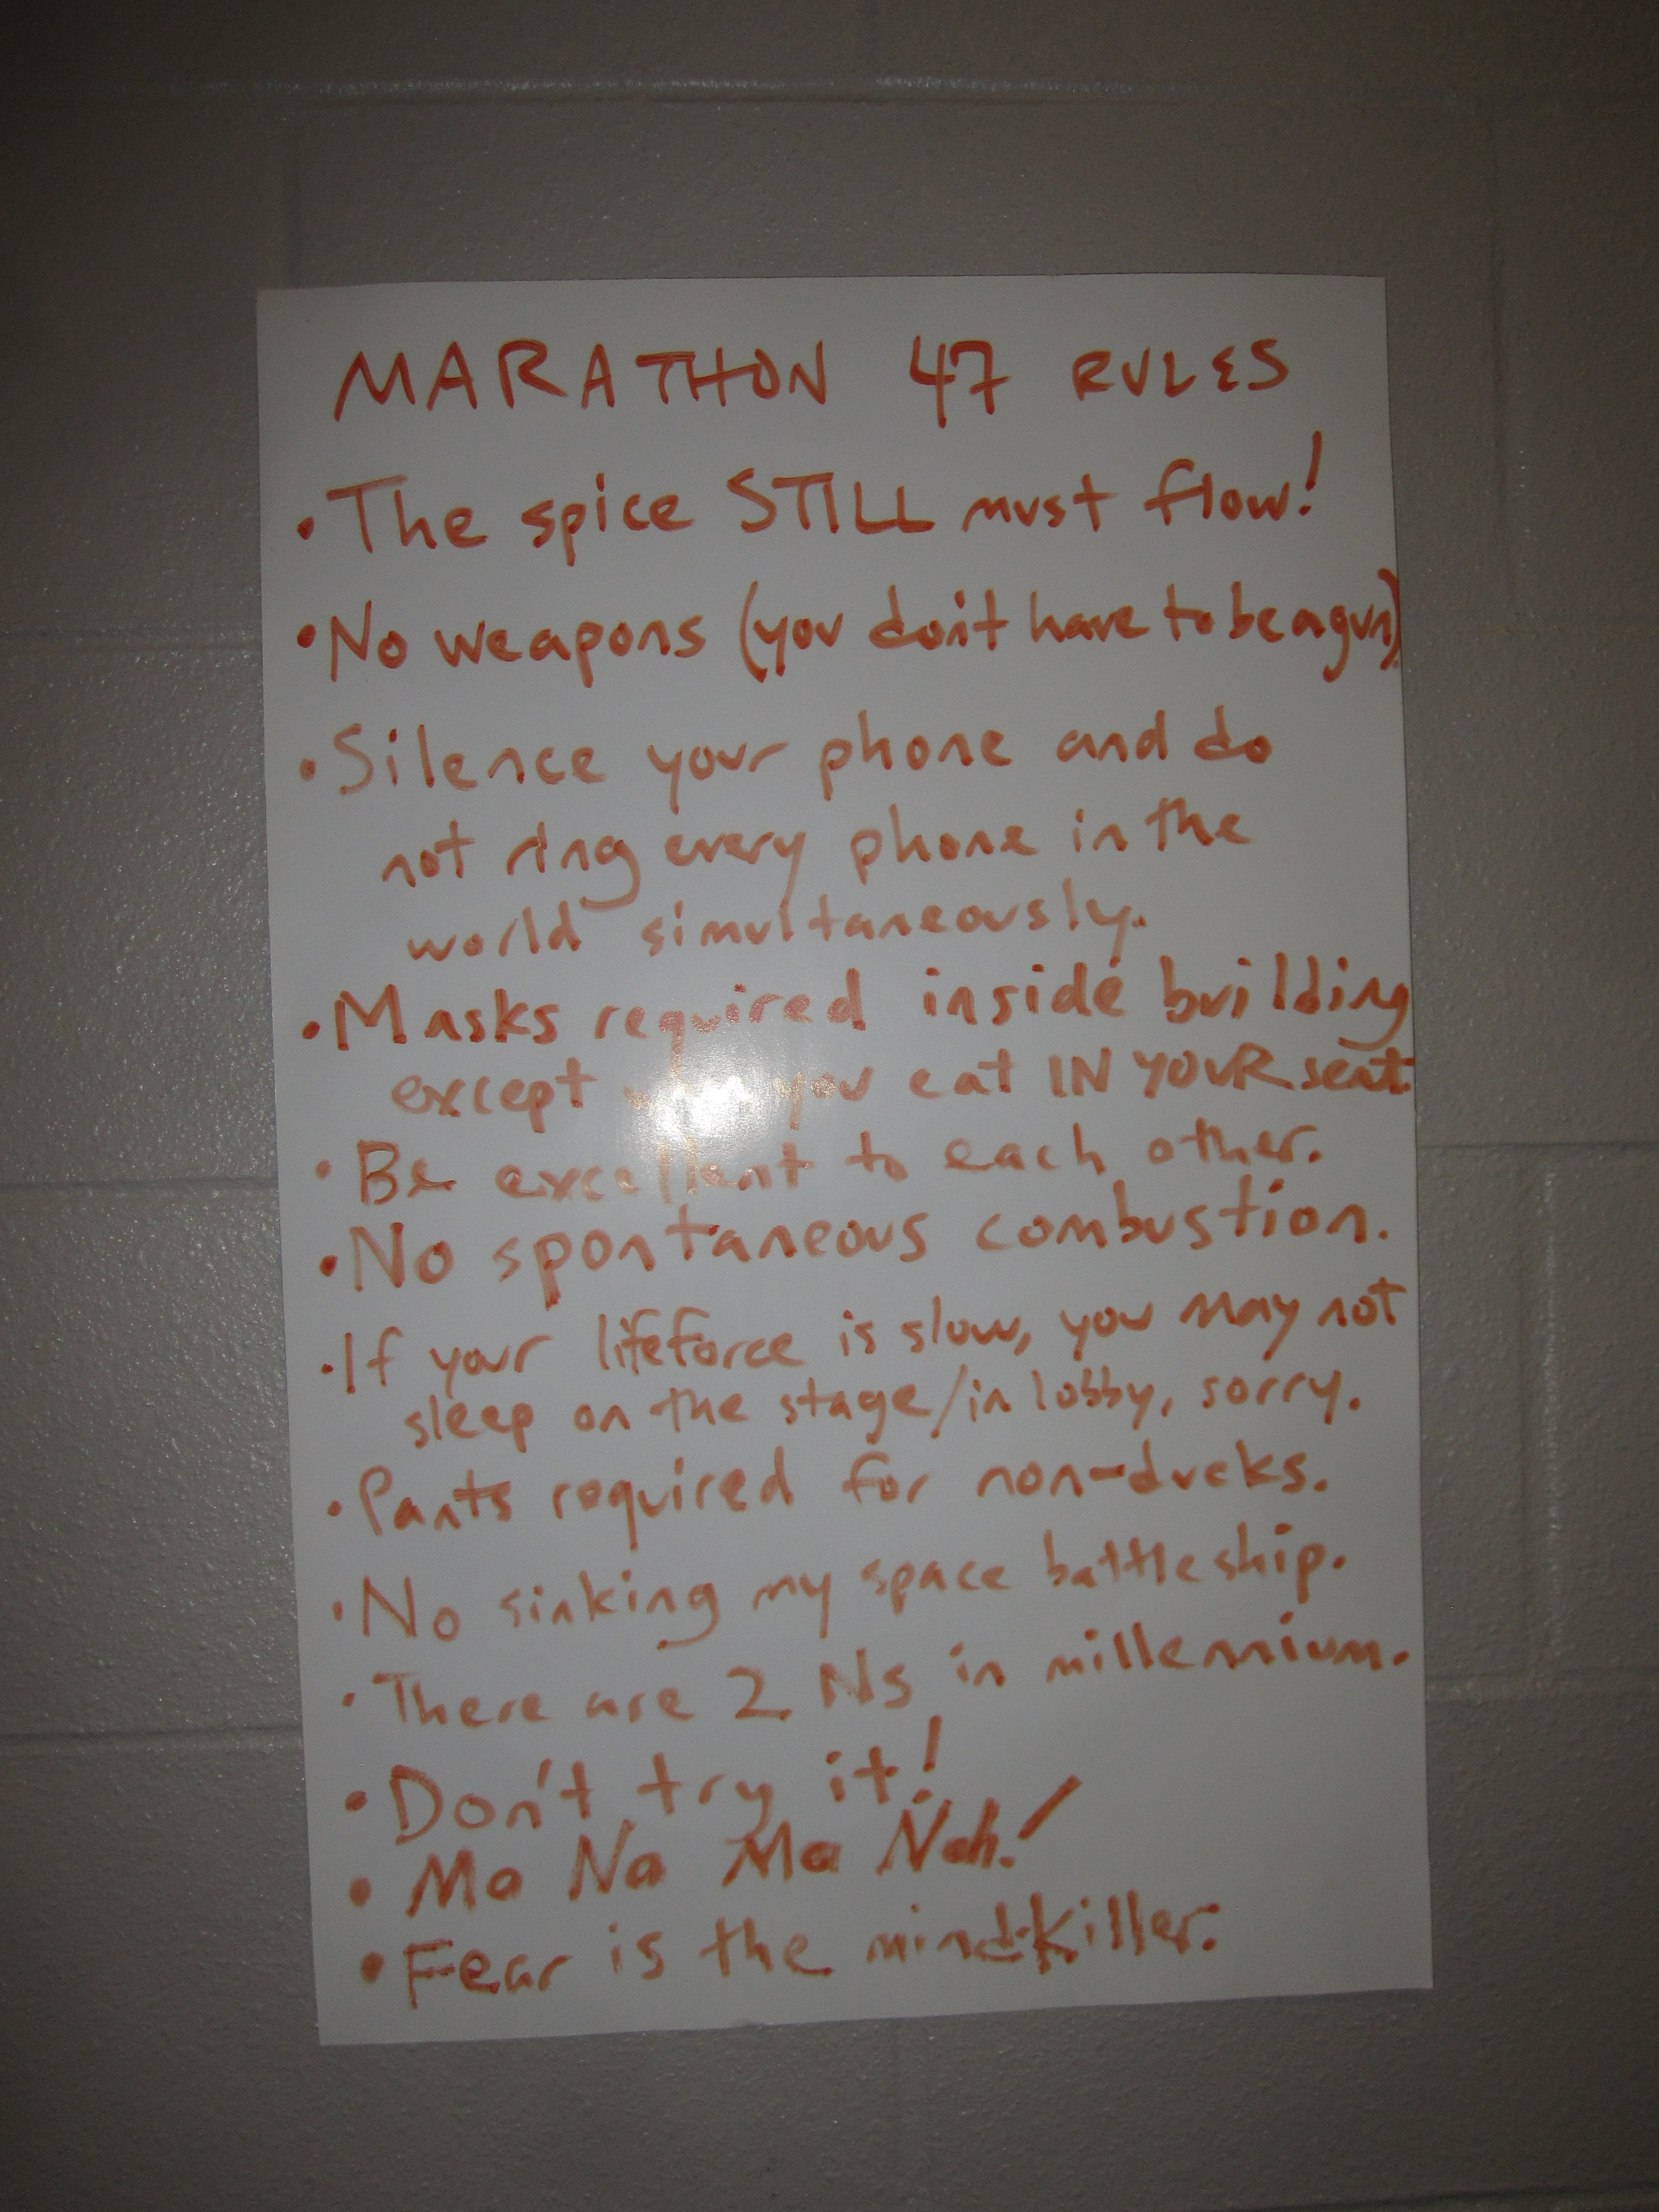 MARATHON 47 RULES
• The spice STILL must flow!
• No weapons (you don't have to be a gun).
• Silence your phone and do
not ring every phone in the
world simultaneously.
• Masks required inside building
except when you eat IN YOUR seat.
• Be excellent to each other.
• No spontaneous combustion.
• If your lifeforce is slow, you may not
sleep on the stage/in lobby, sorry.
• Pants required for non-ducks.
• No sinking my space battleship.
• There are 2 Ns in millennium.
• Don't try it!
• Ma Na Ma Nah!
• Fear is the mind-killer.